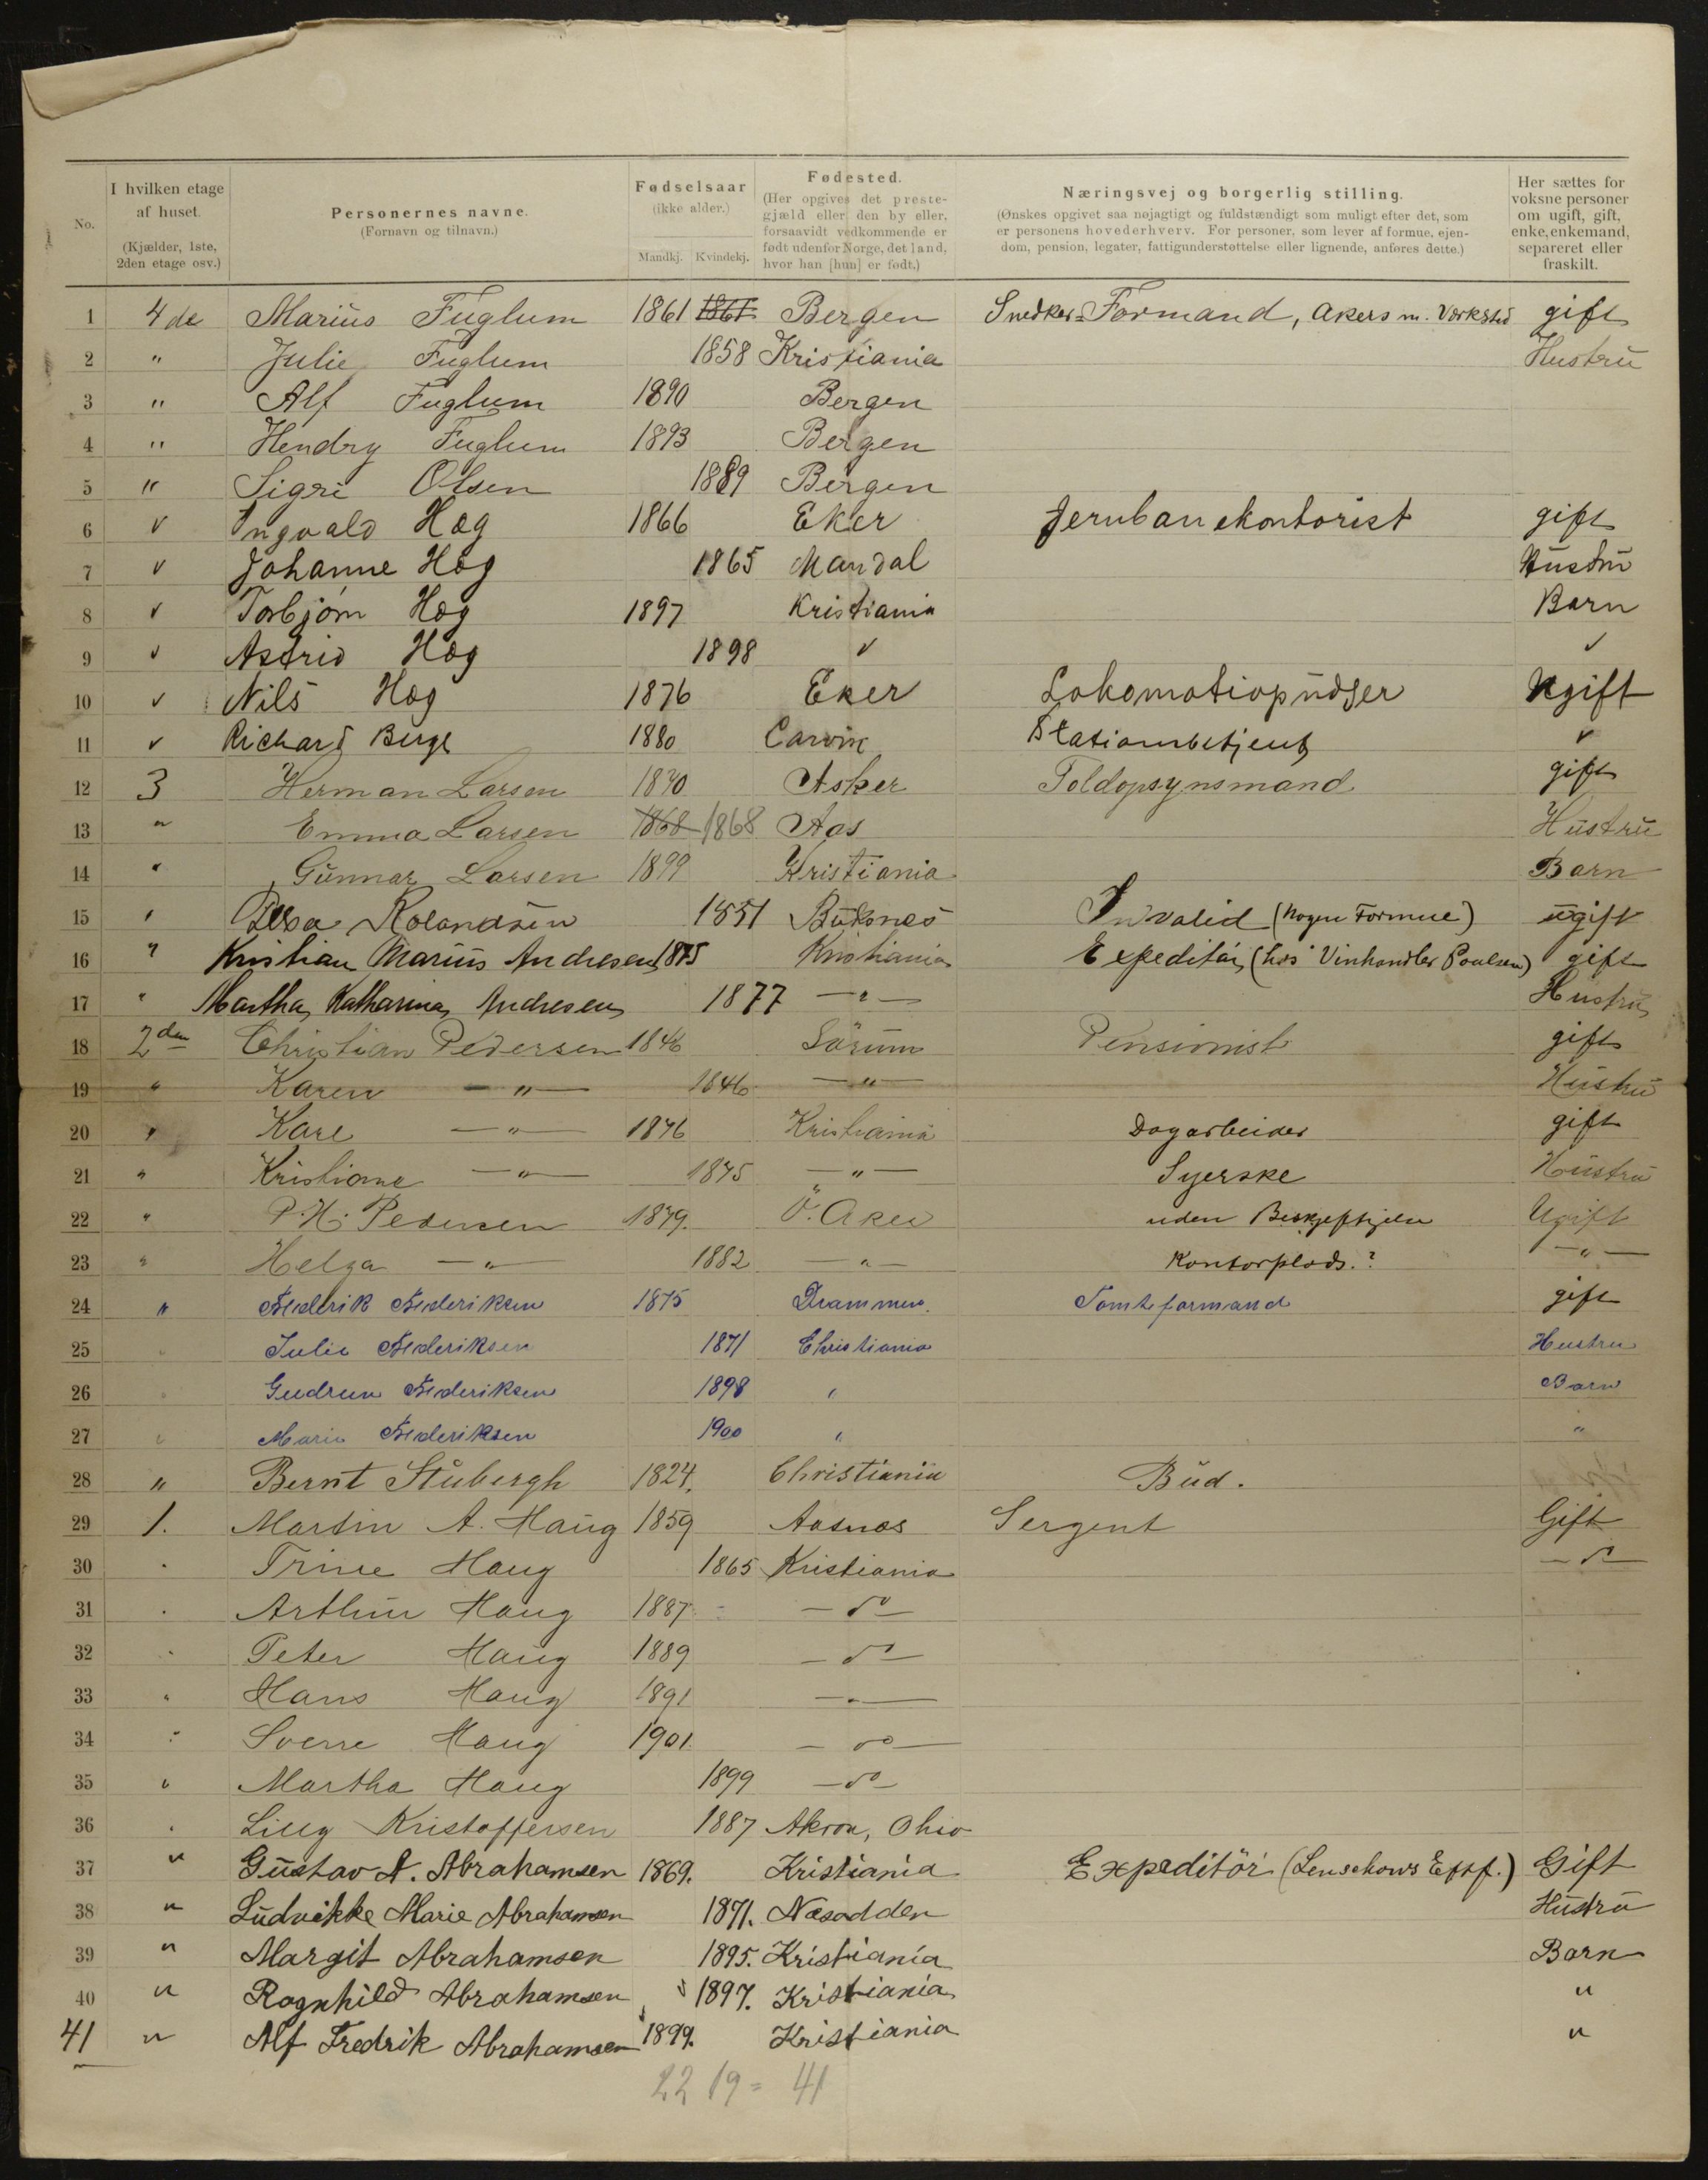 No.
I hvilken etage af huset.
(Kjælder, 1ste, 2den etage osv.)
Personernes navne.
(Fornavn og tilnavn.)
Fødselsaar
(ikke alder.)
Mandkj. Kvindekj.
Fødested.
(Her opgives det prestegjæld eller den by eller, forsaavidt vedkommende er født udenfor Norge, det land, hvor han [hun] er født.)
Næringsvej og borgerlig stilling.
(Ønskes opgivet saa nøjagtigt og fuldstændigt som muligt efter det, som er personens hovederhverv. For personer, som lever af formue, ejendom, pension, legater, fattigunderstøttelse eller lignende, anføres dette.)
Her sættes for voksne personer om ugift, gift, enke, enkemand, separeret eller fraskilt.
1 4de Marius Fuglum 1861 1861 Bergen Snedker=Formand, Akers m. Værksted gift
2 " Julie Fuglum 1858 Kristiania Hustru
3 " Alf Fuglum 1890 Bergen
4 " Hendry Fuglum 1893 Bergen
5 " Sigri Olsen 1889 Bergen
6 " Ingvald Hæg 1866 Eker Jernbanekontorist gift
7 " Johanne Hæg 1865 Mandal Hustru
8 " Torbjørn Hæg 1897 Kristiania Barn
9 " Astrid Hæg 1898 " "
10 " Nils Hæg 1876 Eker Lokomotivpudser Ugift
11 " Richard Berge 1880 Stationsbetjent "
12 3 Herman Larsen 1870 Asker Toldopsynsmand gift
13 " Emma Larsen 1868 1868 Aas Hustru
14 " Gunnar Larsen 1899 Kristiania Barn
15 " Rolandsen 1851 Buksnes Invalid (nogen Formue) ugift
16 " Kristian Marius Andresen 1875 Kristiania Expeditör (hos Vinhandler Poulsen) gift
17 " Martha Katharina Andresen 1877 — " — Hustru
18 2den Christian Pedersen 1846 Sørum Pensionist gift
19 " Karen — " — 1846 — " — Hustru
20 " Karl — " — 1876 Kristiania Dagarbeider gift
21 " Kristiane — " — 1875 — " — Syerske Hustru
22 " P. H. Pedersen 1879. Ö. Aker uden Beskjeftigelse Ugift
23 " Helga — " — 1882 — " — Kontorplads.? — " —
24 " Frederik Frederiksen 1875 Drammen. Tomteformand gift
25 " Julie Frederiksen 1871 Christiania Hustru
26 Gudrun Frederiksen 1898 " Barn
27 " Marie Frederiksen 1900 " "
28 " Bernt Stubergh 1824. Christiania Bud.
29 1. Martin A. Haug 1859 Aasnæs Sergent Gift
30 " Trine Haug 1865 Kristiania — do —
31 " Arthur Haug 1887 — do —
32 " Peter Haug 1889 — do —
33 " Hans Haug 1891 — " —
34 " Sverre Haug 1901. — do —
35 " Martha Haug 1899 — do —
36 " Lilly Kristoffersen 1887 Akron, Ohio
37 " Gustav A. Abrahamsen 1869. Kristiania Expeditör (Lenschows Eftf.) Gift
38 " Ludvikke Marie Abrahamsen 1871. Næsodden Hustru
39 " Margit Abrahamsen 1895. Kristiania Barn
40 " Ragnhild Abrahamsen 1897. Kristiania "
41 " Alf Fredrik Abrahamsen 1899. Kristiania "
22 19 = 41